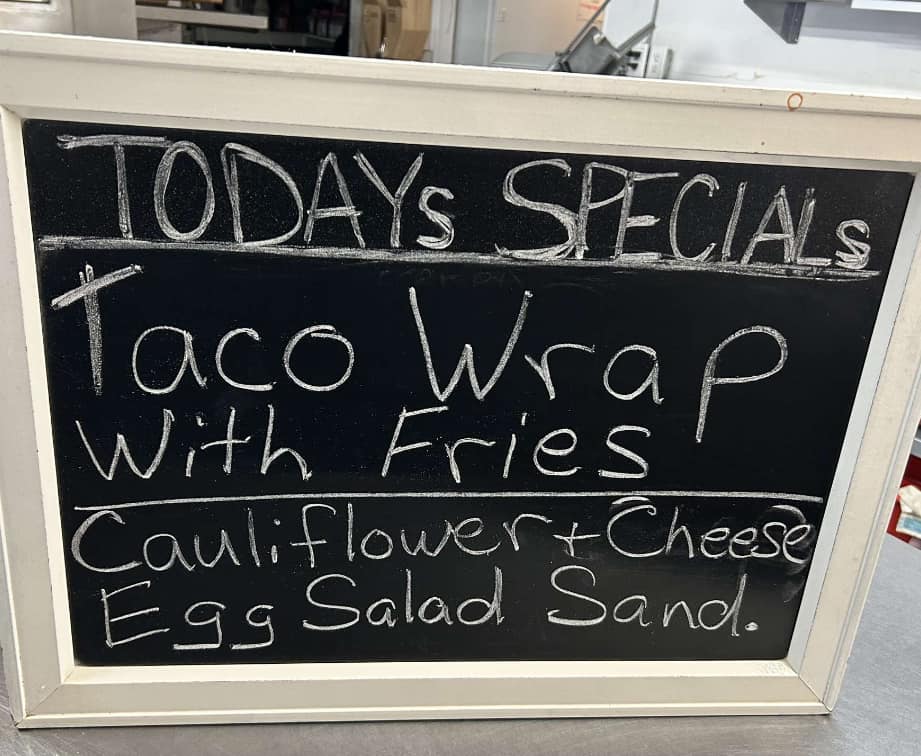 TODAYs SPECIALs
Taco Wrap
With Fries
Cauliflower + Cheese
Egg Salad Sand.